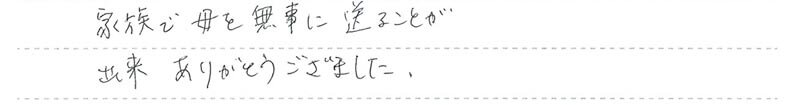 家族で母を無事に送ることが
出来 ありがとうございました.